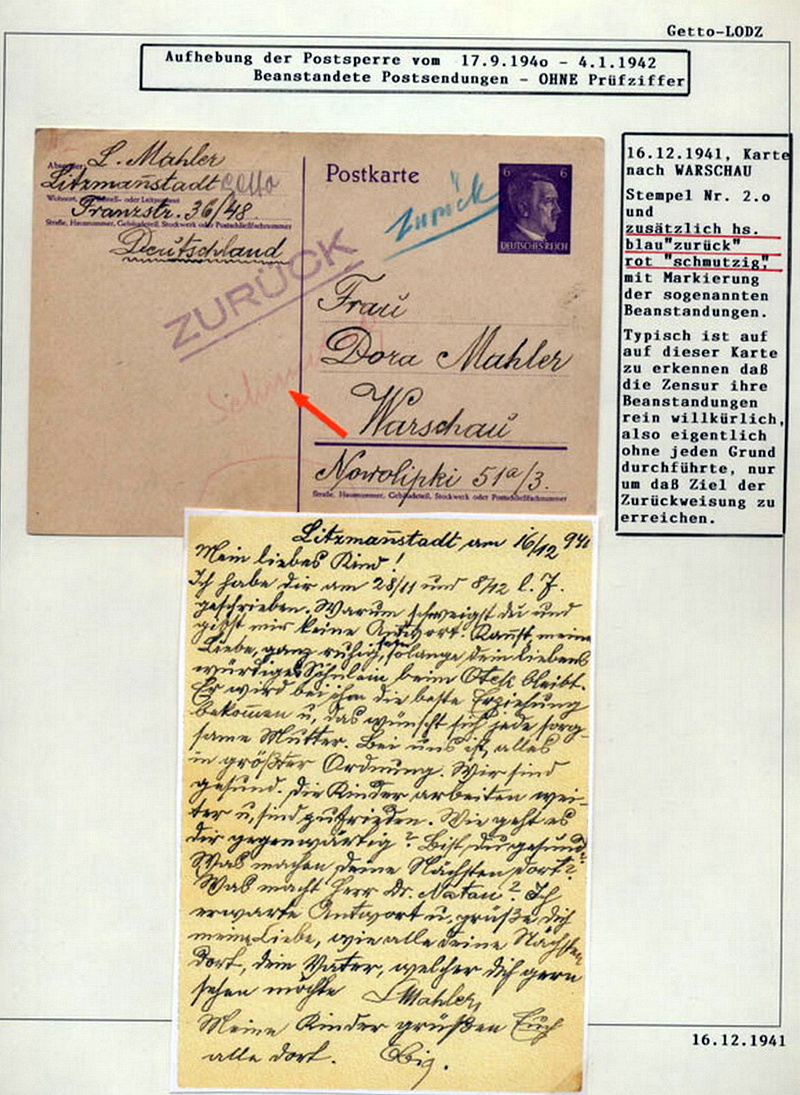 Getto-LODZ
Aufhebung der Postsperre vom 17.9.194o - 4.1.1942
Beanstandete Postsendungen - OHNE Prüfziffer
Absender: L. Mahler
Litzmannstadt Getto
Wohnort, auch Zustell- oder Leitpostamt
Franzstr. 36/48
Straße, Hausnummer, Gebäudeteil, Stockwerk oder Postschließfachnummer
Deutschland
ZURÜCK
Schmutzig
Postkarte
zurück
6 6
DEUTSCHES REICH
Frau
Dora Mahler
Warschau
Nowolipki 51a/3.
Straße, Hausnummer, Gebäudeteil, Stockwerk oder Postschließfachnummer
16.12.1941, Karte
nach WARSCHAU
Stempel Nr. 2.o
und
zusätzlich hs.
blau"zurück"
rot "schmutzig",
mit Markierung
der sogenannten
Beanstandungen.
Typisch ist auf
auf dieser Karte
zu erkennen daß
die Zensur ihre
Beanstandungen
rein willkürlich,
also eigentlich
ohne jeden Grund
durchführte, nur
um daß Ziel der
Zurückweisung zu
erreichen.
Litzmannstadt am 16/12 941
Mein liebes Kind!
Ich habe dir am 28/11 und 8/12 l. J.
geschrieben. Warum schweigst du und
gibst mir keine Antwort. Kannst, meine
Liebe, ganz ruhig sein, solange dein liebens
würdiges Söhnlein beim Otek bleibt.
Er wird bei ihm die beste Erziehung
bekommen u. das wünscht sich jede sorg-
same Mutter. Bei uns ist alles
in größter Ordnung. Wir sind
gesund. Die Kinder arbeiten wei-
ter u. sind zufrieden. Wie geht es
dir gegenwärtig? Bist du gesund?
Was machen deine Nächsten dort?
Was macht Herr Dr. Natan? Ich
erwarte Antwort u. grüße dich
meine Liebe, wie alle deine Nächsten
dort, dein Vater, welcher dich gern
sehen möchte L Mahler,
Meine Kinder grüßen Euch
alle dort. Obig.
16.12.1941